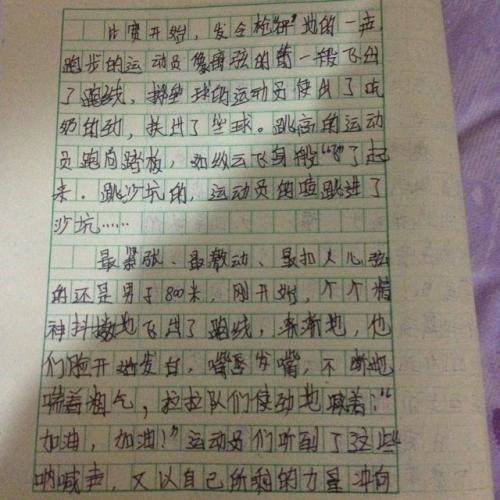 比赛开始，发令枪"砰"地的一声，
跑步的运动员像离弦的箭一般飞出
了跑线，球的运动员使出了吃
奶的劲，扶进了坐球。跳高的运动
员跑向踏板，如纵云飞身般"飞"了起
来。跳沙坑的，运动员的喷跳进了
沙坑……
最紧张、最激动、最扣人心弦
的还是男子800米，刚开始，个个精
神抖擞地飞出了跑线，渐渐地，他
们脸开始发白，嘴发嘴，不断地
喘着粗气，拉拉队们使劲地喊着："
加油，加油！"运动员们听到了这些
呐喊声，又以自己所剩的力量冲向